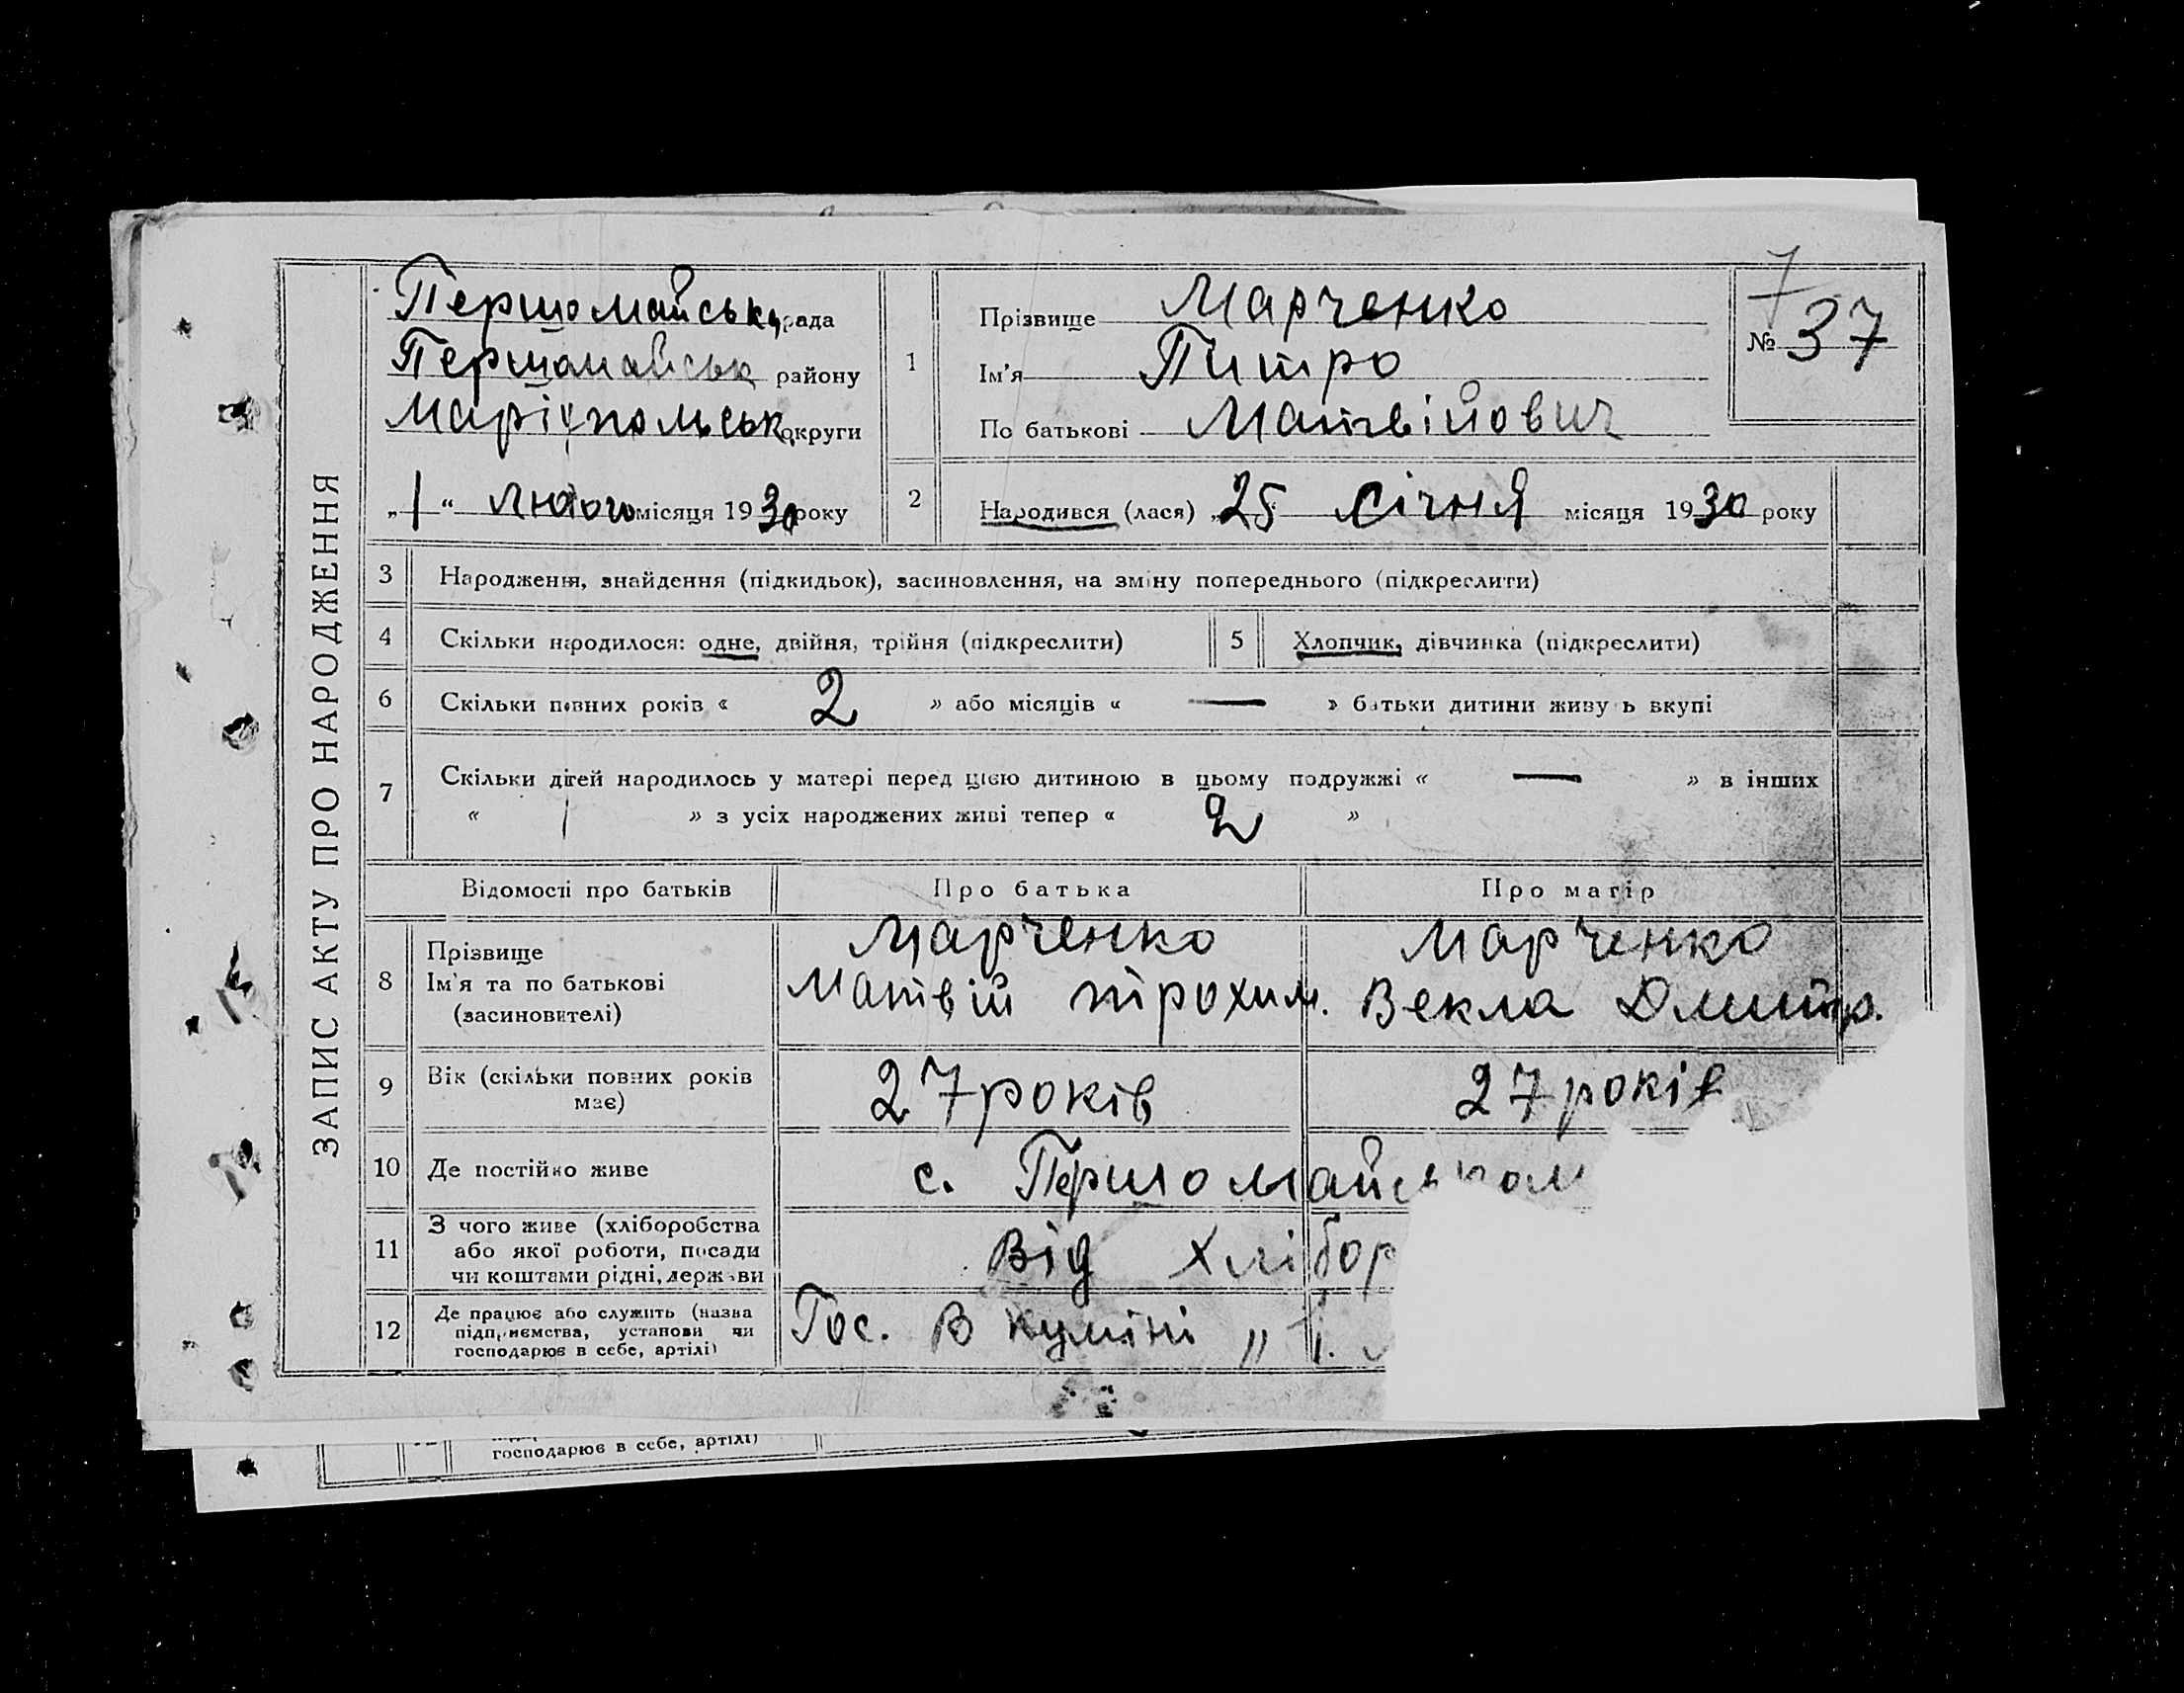 ЗАПИС АКТУ ПРО НАРОДЖЕННЯ
Першомайська рада
Першомайськ району
Маріупольськ округи
„1“ Лютого місяця 1930 року
1
Прізвище Марченко
Ім'я Питро
По батькові Матвійович
7
№ 37
2
Народився (лася) „25 Січня місяця 1930 року
3 Народження, знайдення (підкидьок), засиновлення, на зміну попереднього (підкреслити)
4 Скільки народилося: одне, двійня, трійня (підкреслити) 5 Хлопчик, дівчинка (підкреслити)
6 Скільки повних років « 2 » або місяців « — » батьки дитини живуть вкупі
7 Скільки дітей народилось у матері перед цією дитиною в цьому подружжі « — » в інших
« 1 » з усіх народжених живі тепер « 2 »
Відомості про батьків Про батька Про матір
8 Прізвище
Ім'я та по батькові
(засиновителі)
Марченко
Матвій трохим.
Марченко
Векла Дмитр.
9 Вік (скільки повних років
має)
27 років 27 років
10 Де постійно живе с. Першомайськом
11 З чого живе (хліборобства
або якої роботи, посади
чи коштами рідні, держави
Від Хлібор
12 Де працює або служить (назва
підприємства, установи чи
господарює в себе, артілі)
Гос. в куміні „1.
господарює в себе, артілі)